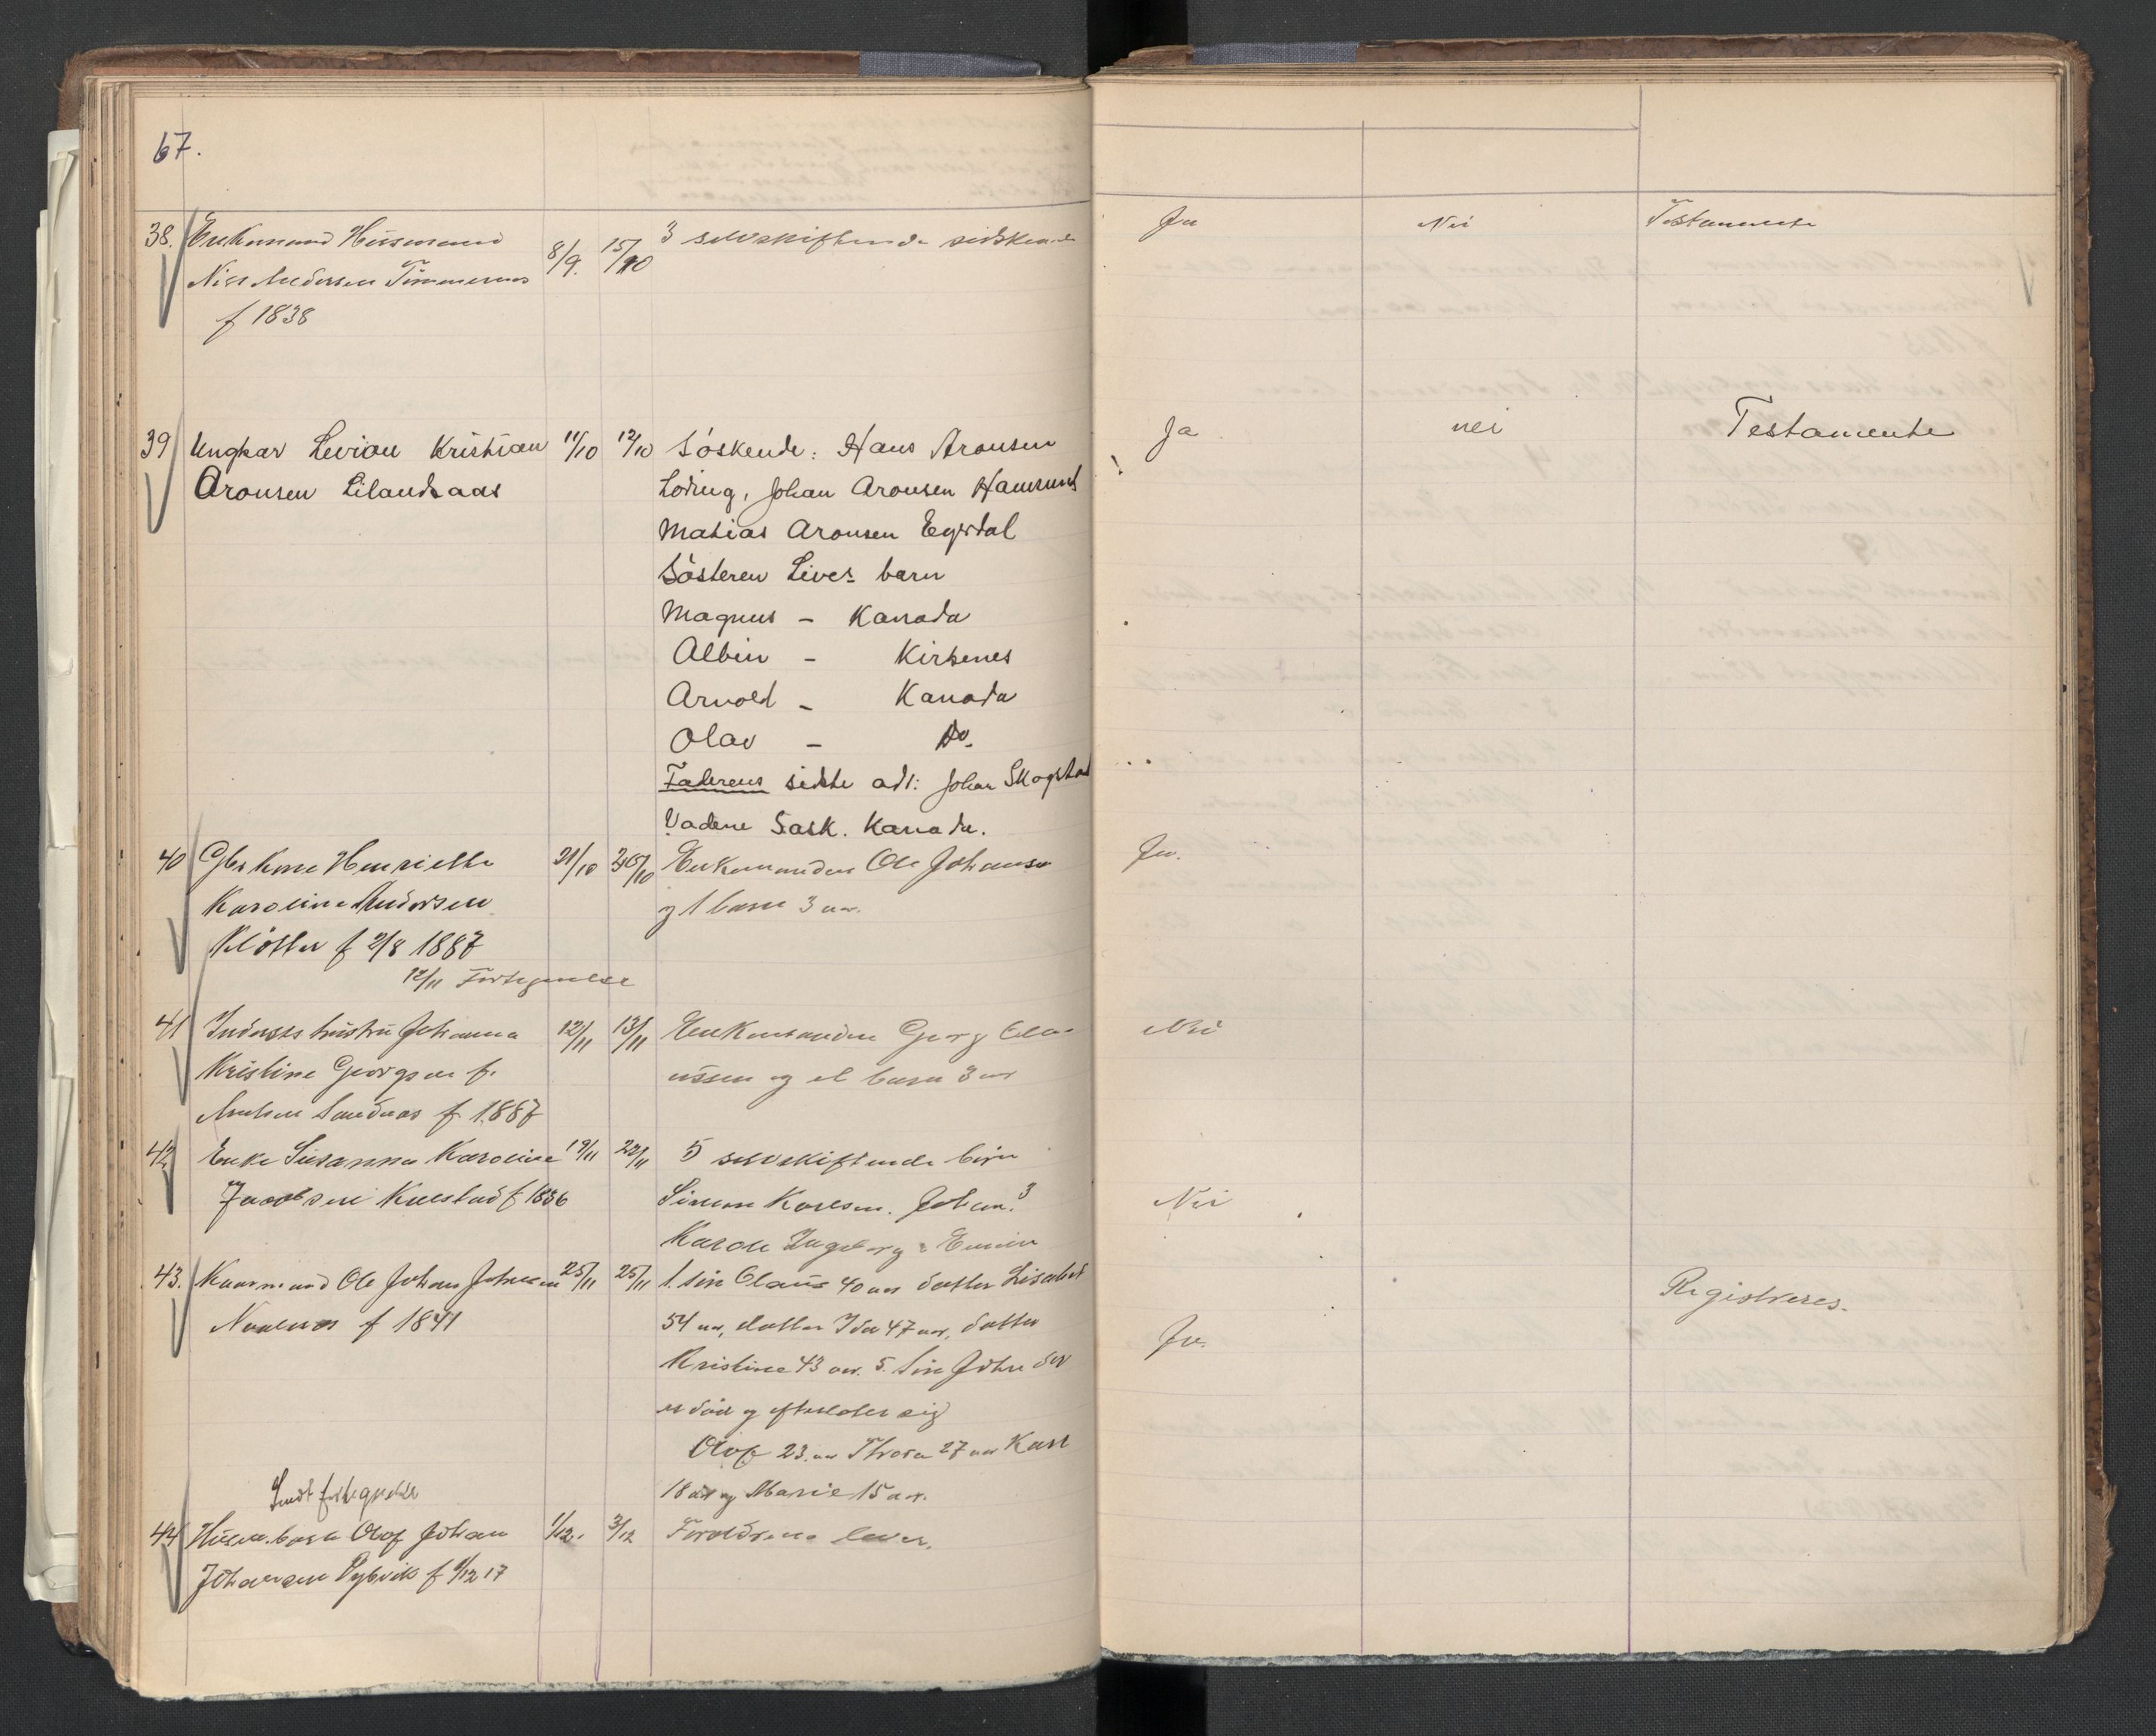 67.
38. Enkemand Husmand 8/9. 15/10 3 selvskiftende sødskende Ja Nei Testamente
Nils Andersen Tømmernes
f 1838
39 Ungkar Levion Kristian 11/10 12/10 Søskende: Hans Aronsen Ja nei Testamente
Aronsen Lilandsaas Løding, Johan Aronsen Hamsund
Matias Aronsen Egsdal
Søsteren Lives barn
Magnus - Kanada
Albin - Kirkenes
Arvold - Kanada
Olav - Do.
Faderens sidste adr: Johan Skogstad
Vadene Sask. Kanada.
40 Gbr kone Henriette 21/10 26/10 Enkemanden Ole Johansen Ja.
Karoline Andersen og 1 barn 3 aar.
f 2/8 1887
12/11 Fortegnelse
41 Inderst hustru Johanna 12/11 13/11 Enkemanden Georg Cla- Nei
Kristine Georgsen f. ussen og et barn 3 aar
Sandnes f. 1887
42 Enke Susanna Karoline 19/11 22/11 5 selvskiftende børn
Jacobsen f 1836 Simon Karlsen. Johan. Nei
Ingeborg
43. Kaarmand Ole Johan Johnsen 25/11 25/11 1. søn Claus 40 aar datter Lisabet Registreres.
f 1841 54 aar, datter Ida 47 aar, datter Ja.
Kristine 43 aar. 5. Søn John der
er død og efterlater sig
Olof 23 aar Thora 27 aar Karl
Sendt fortegnelse 18 aar og Marie 15 aar.
44 Husm. barn Olof Johan 1/12. 3/12 Forældrene lever.
Johansen Dybvik f 1/12 17